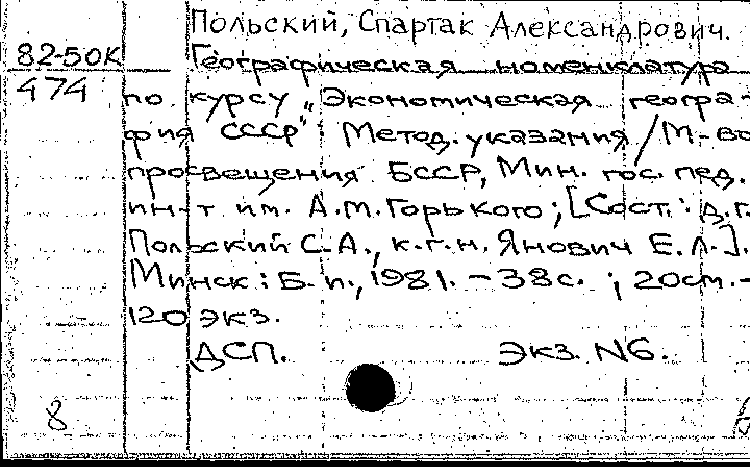 Польский, Спартак Александрович.
82-50К Географическая номенклатура
474 по курсу „Экономическая геогра-
фия СССР": Метод. указания / М-во
просвещения БССР, Мин. гос. пед.
ин-т им. А.М.Горького; [Сост.: д.г.
Польский С.А., к.г.н. Янович Е.Л.].
Минск: Б.и., 1981. - 38с. ; 20см. -
120 экз.
ДСП. Экз. N6.
8